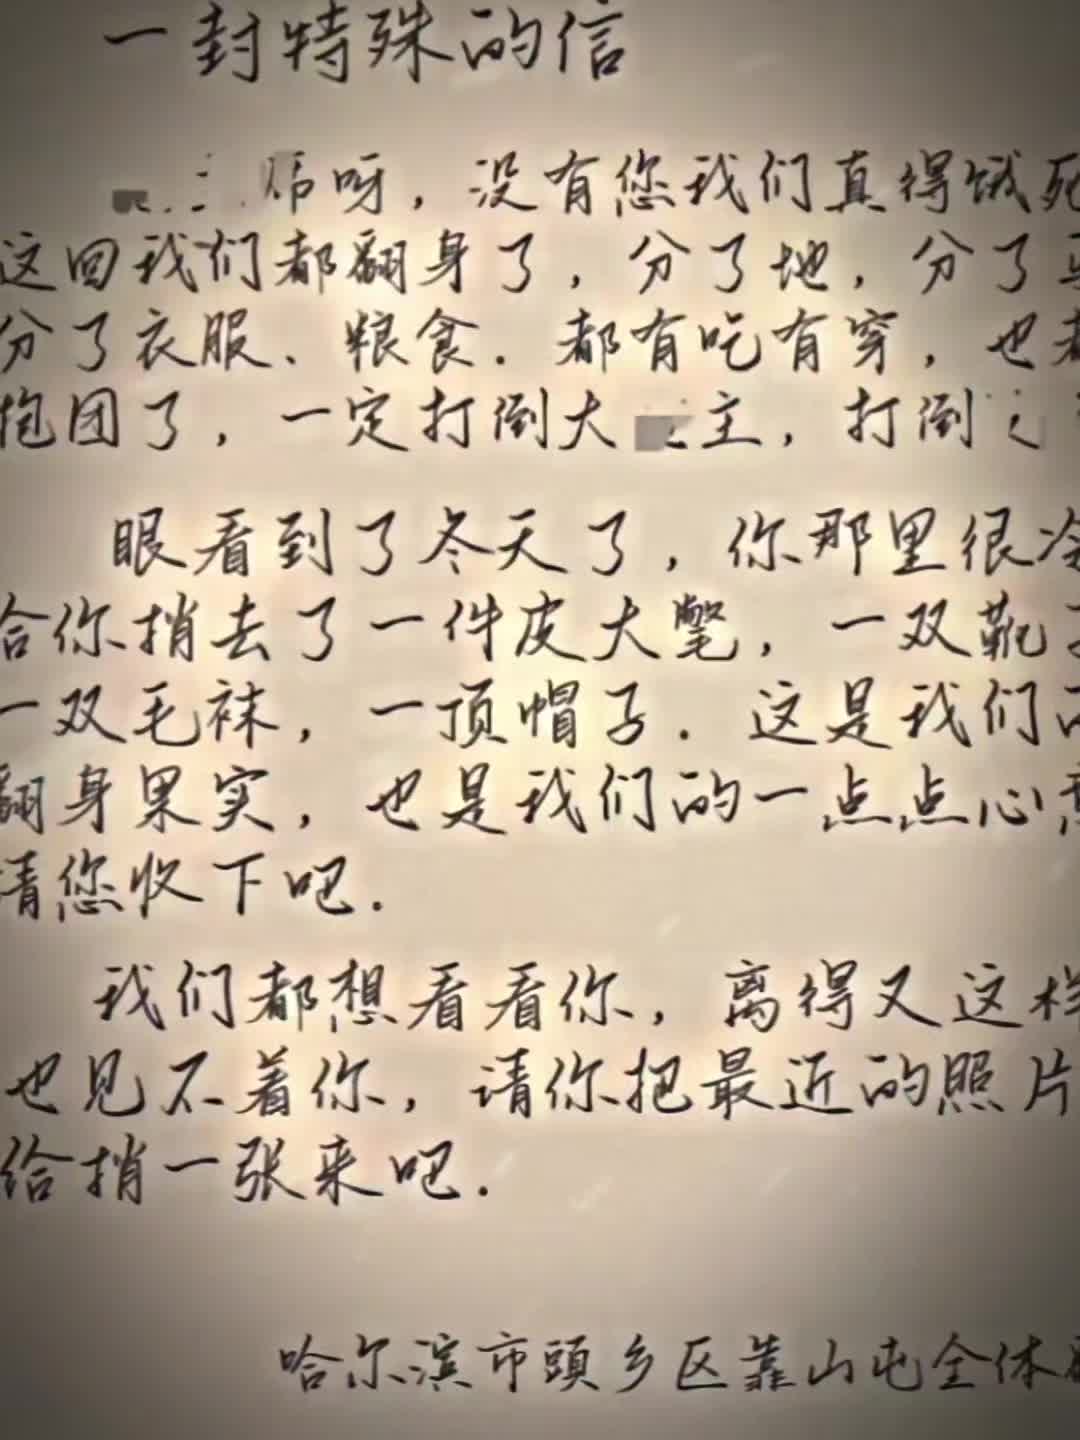 一封特殊的信
呀，没有您我们真得饿死
这回我们都翻身了，分了地，分了
分了衣服、粮食．都有吃有穿，也都
抱团了，一定打倒大主，打倒
眼看到了冬天了，你那里很冷
给你捎去了一件皮大氅，一双靴子
一双毛袜，一顶帽子．这是我们的
翻身果实，也是我们的一点点心意
请您收下吧．
我们都想看看你，离得又这样
也见不着你，请你把最近的照片
给捎一张来吧．
哈尔滨市頭乡区靠山屯全体